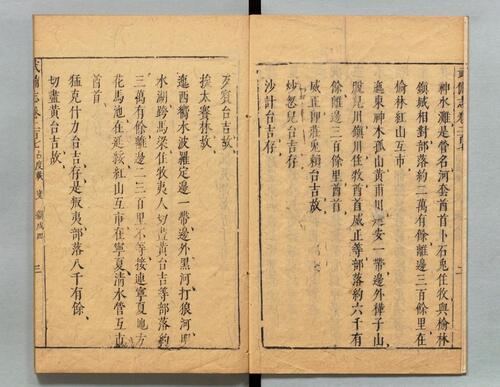 神水灘是管名河套酋首卜石兎住牧與榆林
鎮城相對部落約二萬有餘離邊三百餘里在
榆林紅山互市
迤東神木孤山黃甫川
安一帶邊外
子山
川嶺川住牧酋首威正等部落約六千有
餘離邊三百餘里酋首
威正
賴台吉故
炒忽兒台吉存
沙計台吉存
歹賓台吉故
挨太賽林故
迤西
水波羅定邊一帶邊外黑河打狼河
水湖跨馬梁住牧夷人切盡黃台吉等部落約
三萬有餘離邊二三百里不等接連寧夏地方
花馬池在延綏紅山互市在寧夏清水管互市
酋首
猛克什力台吉存是叛夷部落八千有餘
切盡黃台吉故
武備志卷